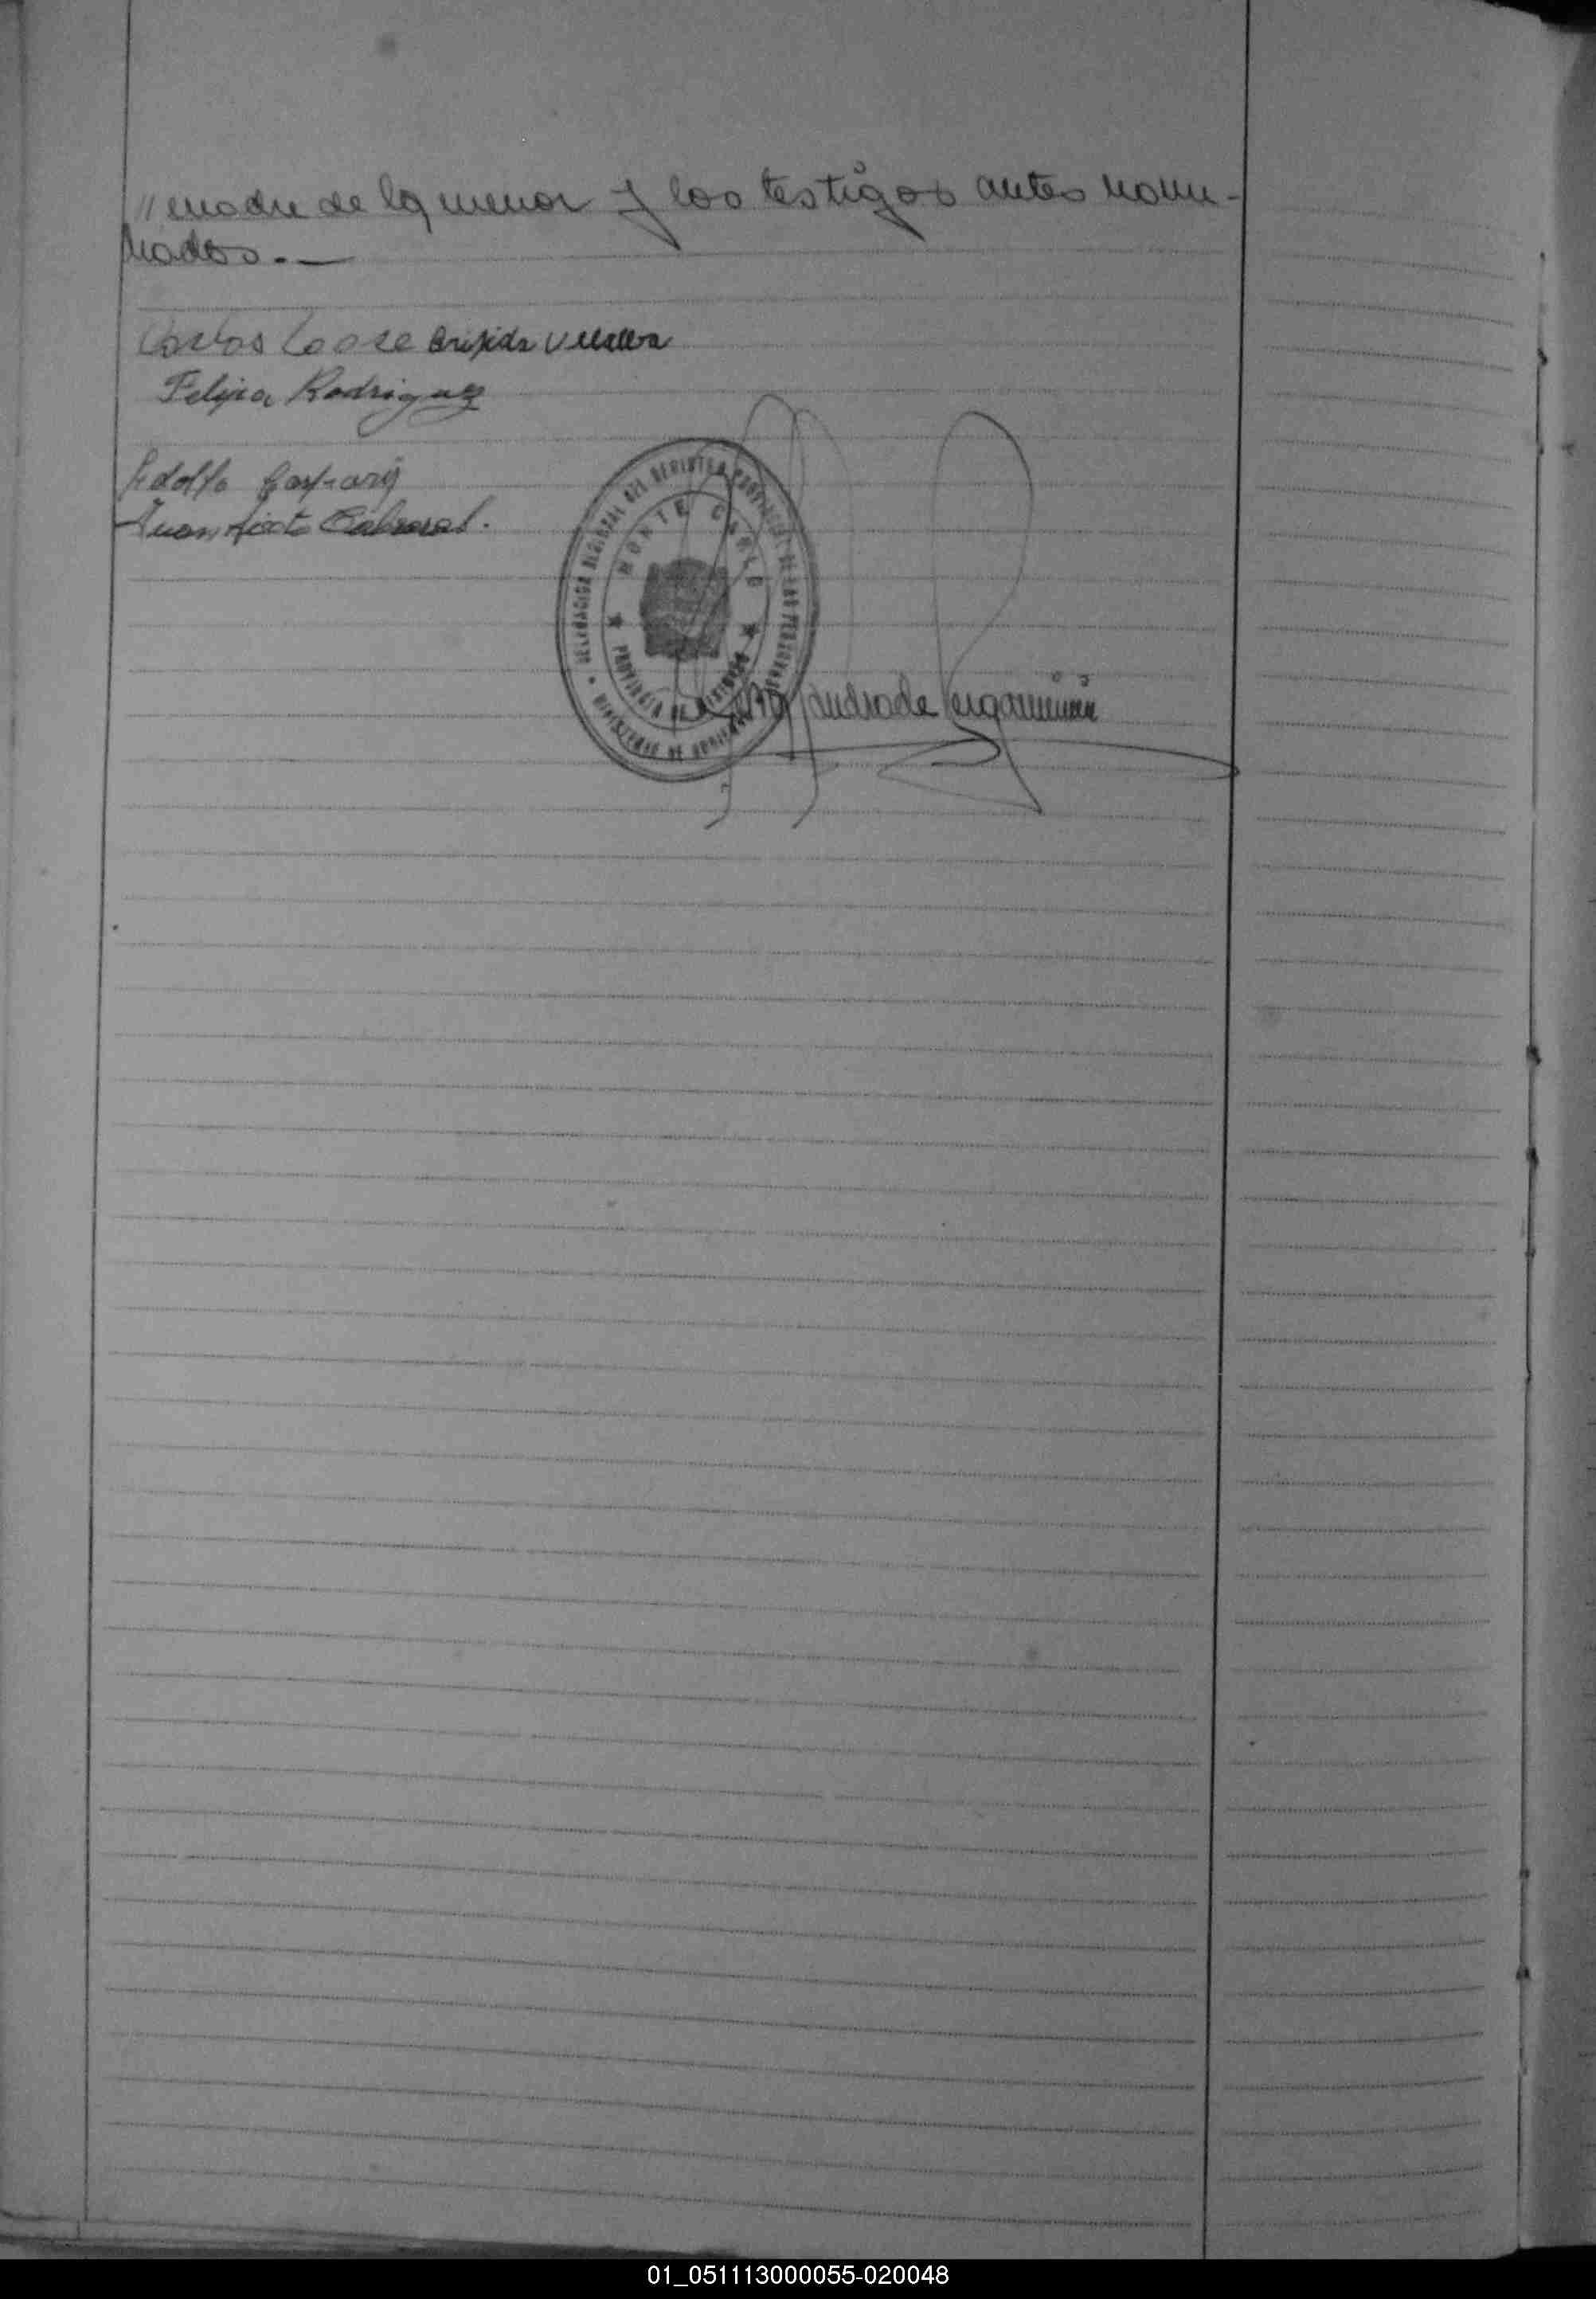 // madre de la menor y los testigos antes nomi-
nados.—
Carlos Loose Brijida Villalba
Felipa Rodriguez
Adolfo
Juan Cabral.
DELEGACION SECCIONAL DEL REGISTRO PROVINCIAL DE LAS PERSONAS
MONTE CARLO
PROVINCIA DE MISIONES
MINISTERIO DE GOBIERNO
andrade
01_051113000055-020048